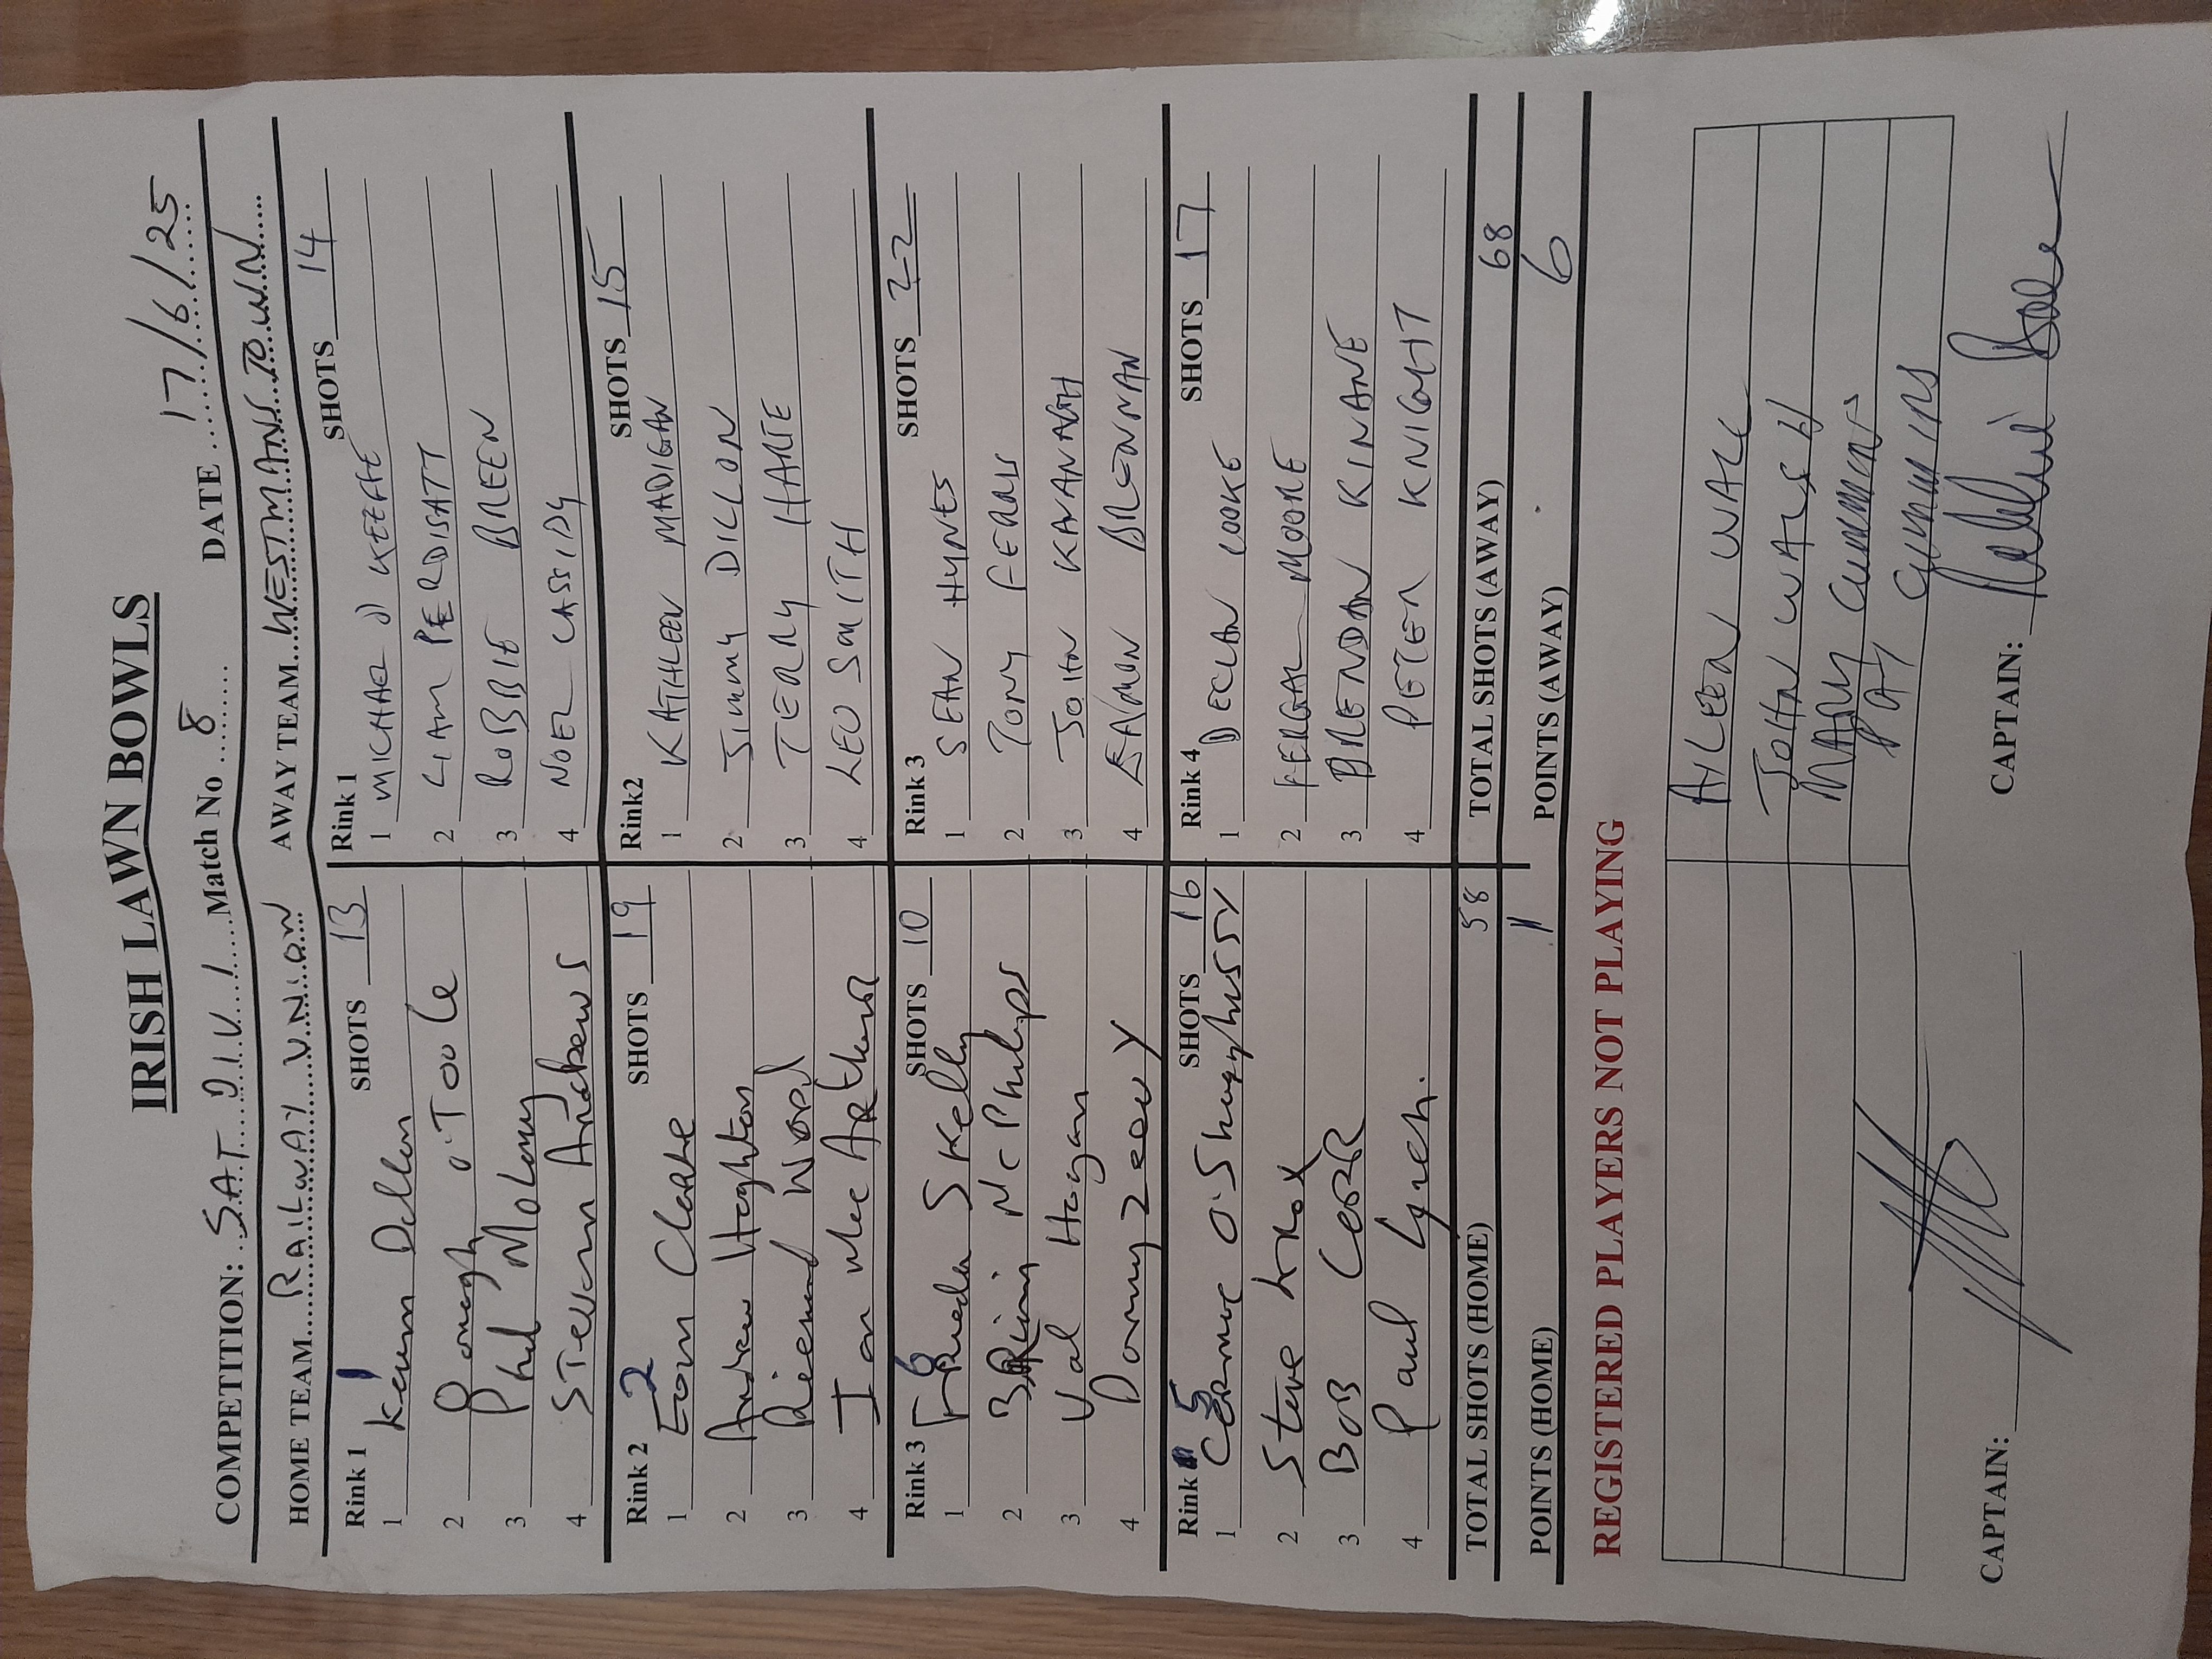 IRISH LAWN BOWLS
COMPETITION: SAT DIV 1 Match No 8 DATE 17/6/25
HOME TEAM RAILWAY UNION AWAY TEAM WESTMANSTOWN
Rink 1 1 SHOTS 13
1 Kevin Dillon
2 Oonagh O'Toole
3 Phil Molony
4 Steven Andrews
Rink 2 2 SHOTS 19
1 Eoin Clarke
2 Andrew Hoghton
3 Wood
4 Ian McArthur
Rink 3 6 SHOTS 10
1 Skelly
2 Brian McPhilips
3 Val Hogan
4 Danny Zeevy
Rink 5 SHOTS 16
1 O'Shaughnessy
2 Steve Knox
3 BOB CERR
4 Paul Lynch.
TOTAL SHOTS (HOME) 58
POINTS (HOME) 1
Rink 1 SHOTS 14
1 MICHAEL O KEEFFE
2 LIAM PERDISATT
3 ROBBIE BREEN
4 NOEL CASSIDY
Rink2 SHOTS 15
1 KATHLEEN MADIGAN
2 JIMMY DILLON
3 TERRY HARTE
4 LEO SMITH
Rink 3 SHOTS 22
1 SEAN HYNES
2 TONY FERRIS
3 JOHN KAVANAGH
4 EAMON BRENNAN
Rink 4 SHOTS 17
1 DECLAN COOKE
2 FERGAL MOORE
3 BRENDAN KINANE
4 PETER KNIGHT
TOTAL SHOTS (AWAY) 68
POINTS (AWAY) 6
REGISTERED PLAYERS NOT PLAYING
AILEEN WALL
JOHN WALSH
MARY CUMMINS
PAT CUMMINS
CAPTAIN:
CAPTAIN: